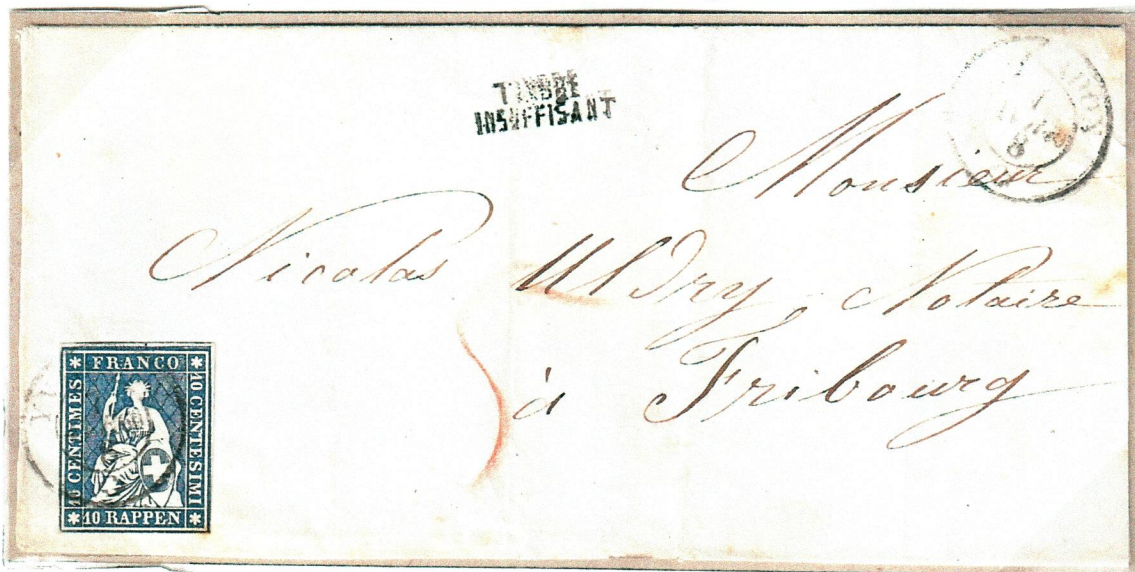 TIMBRE
INSUFFISANT
Monsieur
Nicolas Uldry Notaire
à Fribourg
FRANCO
10 CENTIMES
10 CENTESIMI
10 RAPPEN